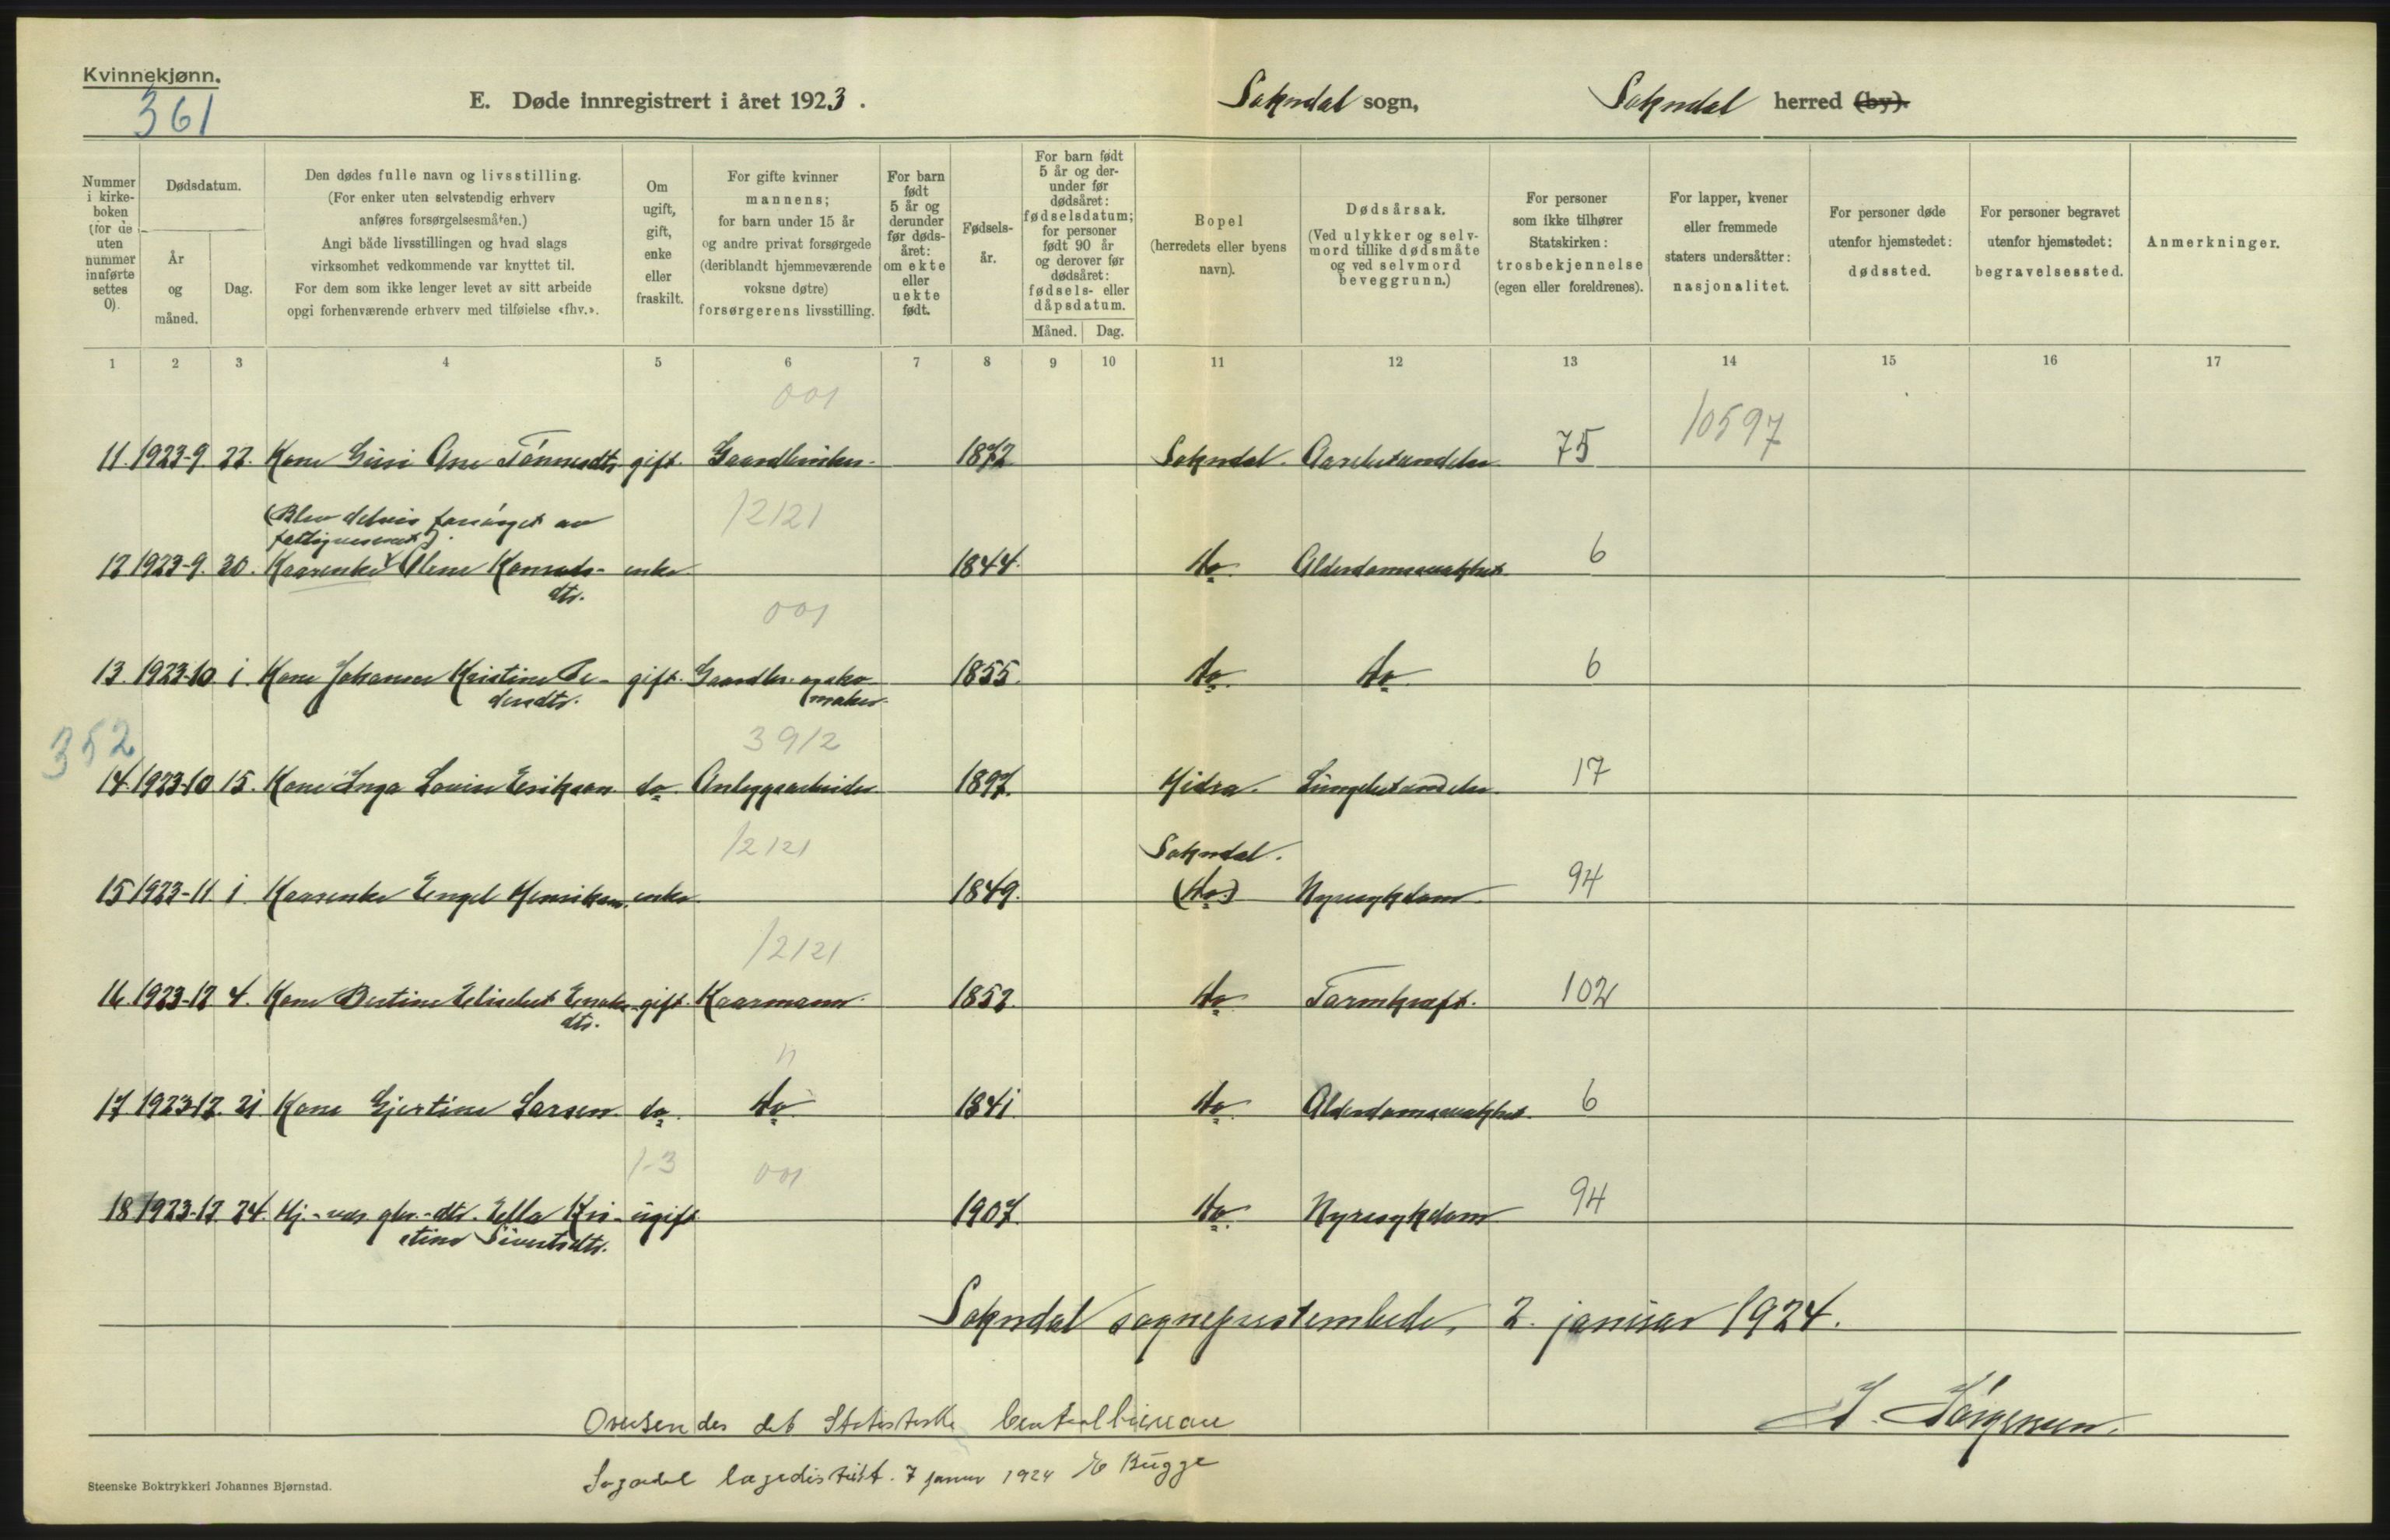 Kvinnekjønn.
361
E. Døde innregistrert i året 1923.
Sokndal sogn,
Sokndal herred (by).
Nummer i kirkeboken (for de uten nummer innførte settes 0).
Dødsdatum.
År og måned.
Dag.
Den dødes fulle navn og livsstilling.
(For enker uten selvstendig erhverv anføres forsørgelsesmåten.)
Angi både livsstillingen og hvad slags virksomhet vedkommende var knyttet til.
For dem som ikke lenger levet av sitt arbeide opgi forhenværende erhverv med tilføielse «fhv.».
Om ugift, gift, enke eller fraskilt.
For gifte kvinner mannens; for barn under 15 år og andre privat forsørgede (deriblandt hjemmeværende voksne døtre) forsørgerens livsstilling.
For barn født 5 år og derunder før dødsåret: om ekte eller uekte født.
Fødselsår.
For barn født 5 år og derunder før dødsåret: fødselsdatum; for personer født 90 år og derover før dødsåret: fødsels- eller dåpsdatum.
Måned. Dag.
Bopel (herredets eller byens navn).
Dødsårsak.
(Ved ulykker og selvmord tillike dødsmåte og ved selvmord beveggrunn.)
For personer som ikke tilhører Statskirken: trosbekjennelse (egen eller foreldrenes).
For lapper, kvener eller fremmede staters undersåtter: nasjonalitet.
For personer døde utenfor hjemstedet: dødssted.
For personer begravet utenfor hjemstedet: begravelsessted.
Anmerkninger.
1 2 3 4 5 6 7 8 9 10 11 12 13 14 15 16 17
001 10597
11. 1923-9. 22. Kone Guri Ase Tønnesdtr. gift. Gaardbruker. 1872 Sokndal. 75
(Blev delvis forsørget av fattigvesenet). 12121
12 1923-9. 30. Kaarenke Olene Konrads- enke 1844. do. Alderdomssvakhet. 6
dtr. 001
13. 1923-10. 1. Kone Johanne Kristine Pe- gift. Gaardbr. og sko- 1855. do. do. 6
dersdtr. maker.
352 3912
14. 1923-10 15. Kone Inga Lovise Eriksson do. Anleggsarbeider 1897. Hidra. Lungebetændelse. 17
12121 Sokndal.
15 1923-11. 1. Kaarenke Engel Henriksen. enke. 1849. (do.) Nyresykdom. 94
12121
16. 1923-12 4. Kone Bertine Elisebet gift. Kaarmann. 1852. do. Tarmkræft. 102
dtr.
"
17 1923-12. 21. Kone Gjertine Larsen do. do. 1841. do. Alderdomssvakhet. 6
1-3 001
18 1923-12. 24. Hj.-vær. gbr.-dtr. Ella Kri- ugift 1907. do. Nyresykdom 94
stine Sivertsdtr.
Sokndal sogneprestembede, 2. januar 1924.
J. Jørgensen.
Oversendes det Statistiske Centralbureau
Sogndal lægedistrikt. 7 januar 1924 E Bugge
Steenske Boktrykkeri Johannes Bjørnstad.